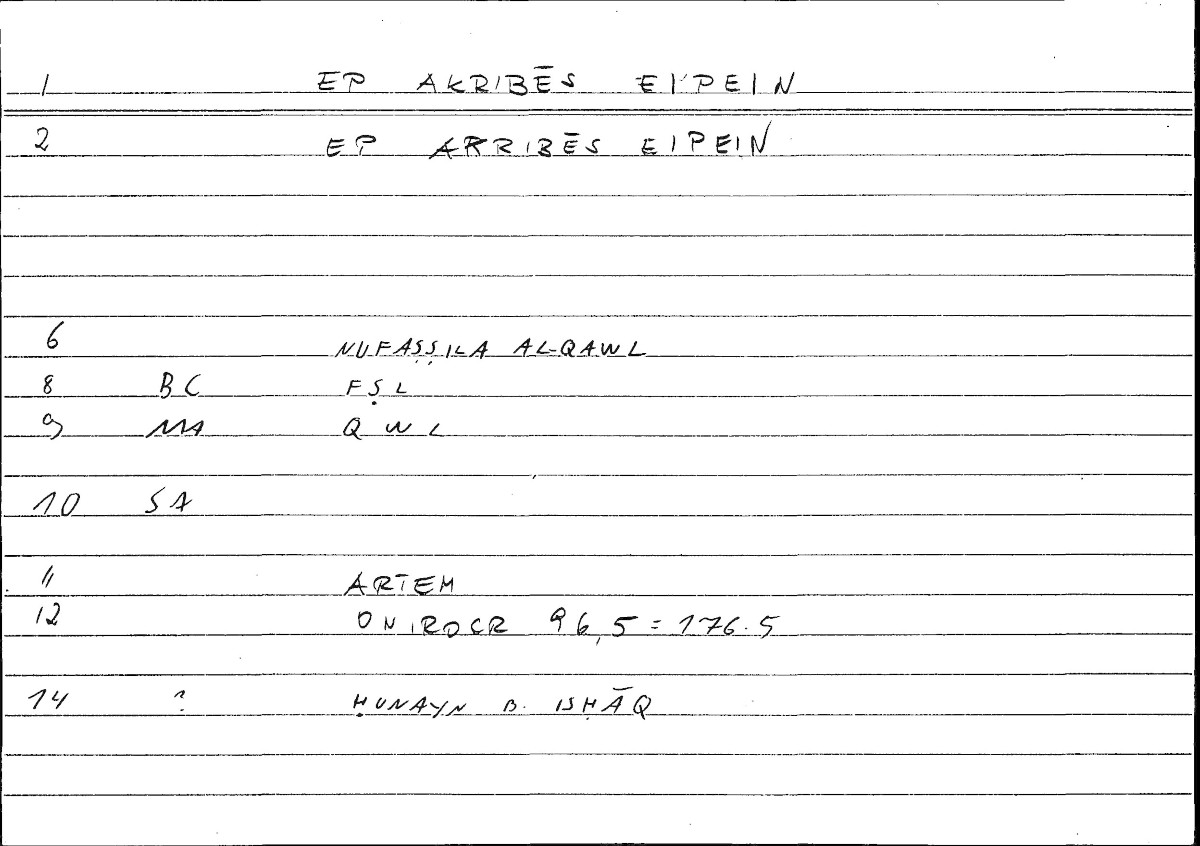 1 EP AKRIBĒS EI'PEIN
2 EP AKRIBĒS EIPEIN
6 NUFAṢṢILA AL-QAWL
8 BC FṢL
9 MA QWL
10 SA
11 ARTEM
12 ONIROCR 96,5 = 176.5
14 ? ḤUNAYN B. ISḤĀQ